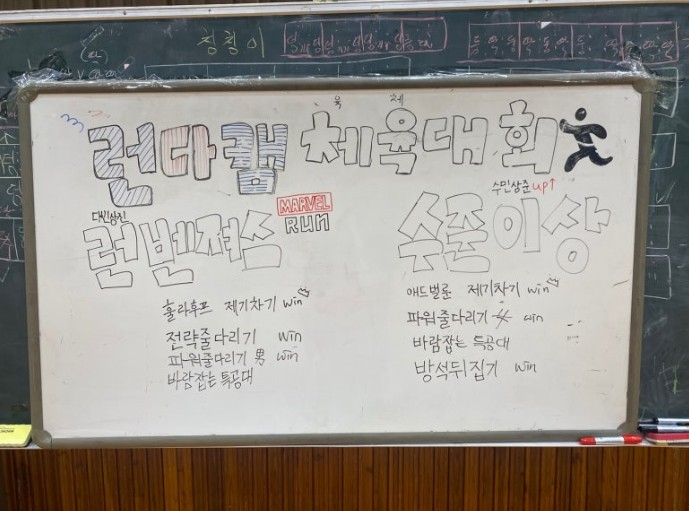 청청이
육 체
런다캠 체육대회
대민상진
런벤져스
MARVEL
RUN
수민상준 up↑
수준이상
훌라후프 제기차기 win
전략줄다리기 win
파워줄다리기 男 win
바람잡는 특공대
애드벌룬 제기차기 win
파워줄다리기 女 win
바람잡는 특공대
방석뒤집기 win